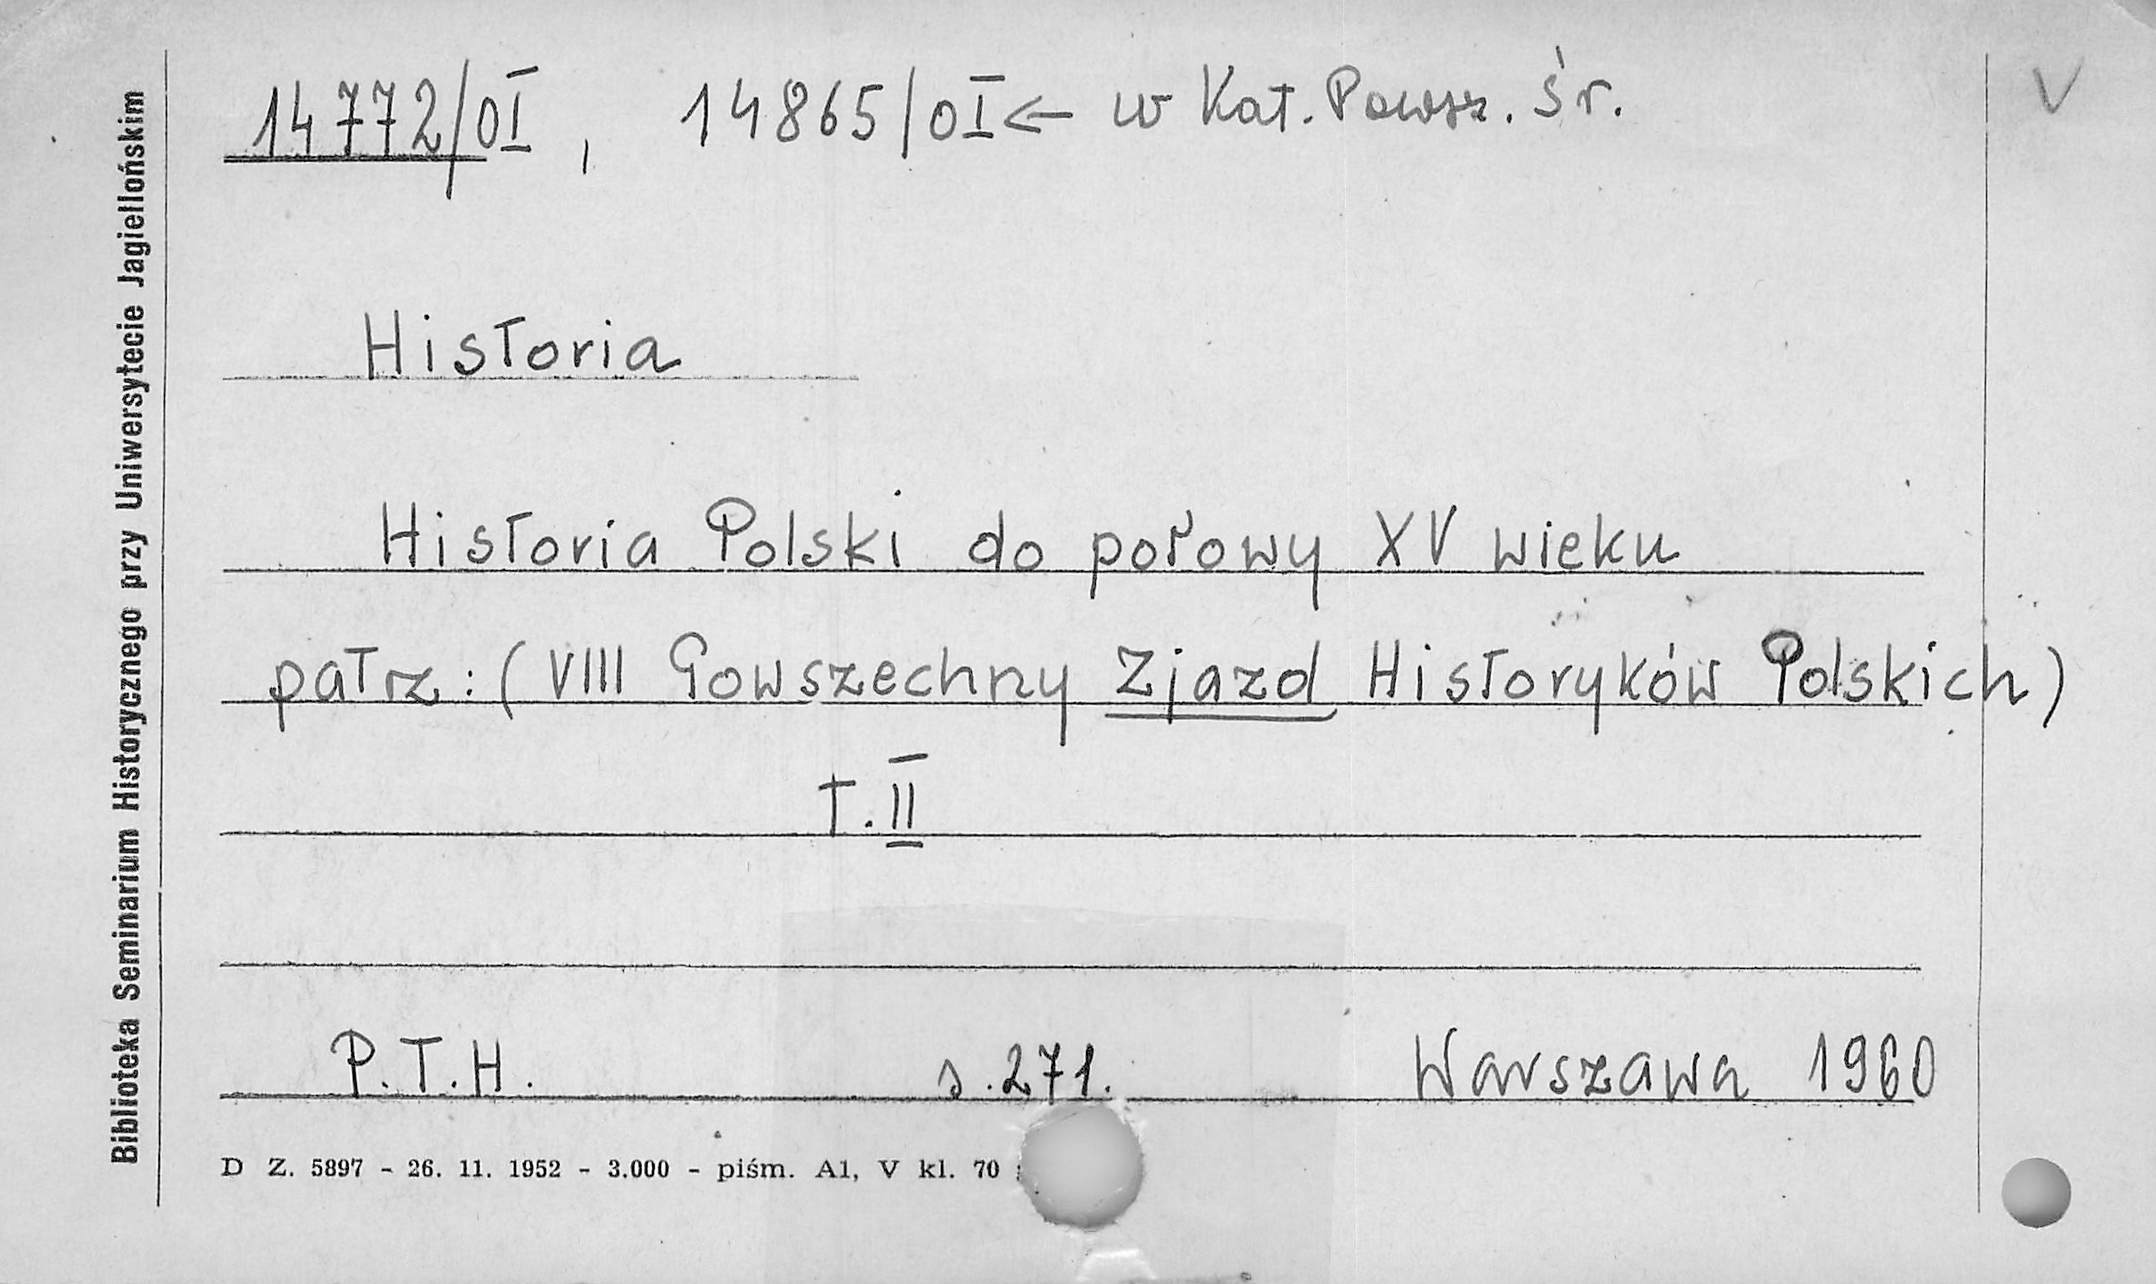 14772/OI, 14865/OI ← w Kat. Powsz. Śr.
V
Historia
Historia Polski do połowy XV wieku
patrz: (VIII Powszechny Zjazd Historyków Polskich)
T. II
P.T.H. s. 271. Warszawa 1960
D Z. 5897 - 26. 11. 1952 - 3.000 - piśm. A1, V kl. 70
Biblioteka Seminarium Historycznego przy Uniwersytecie Jagiellońskim